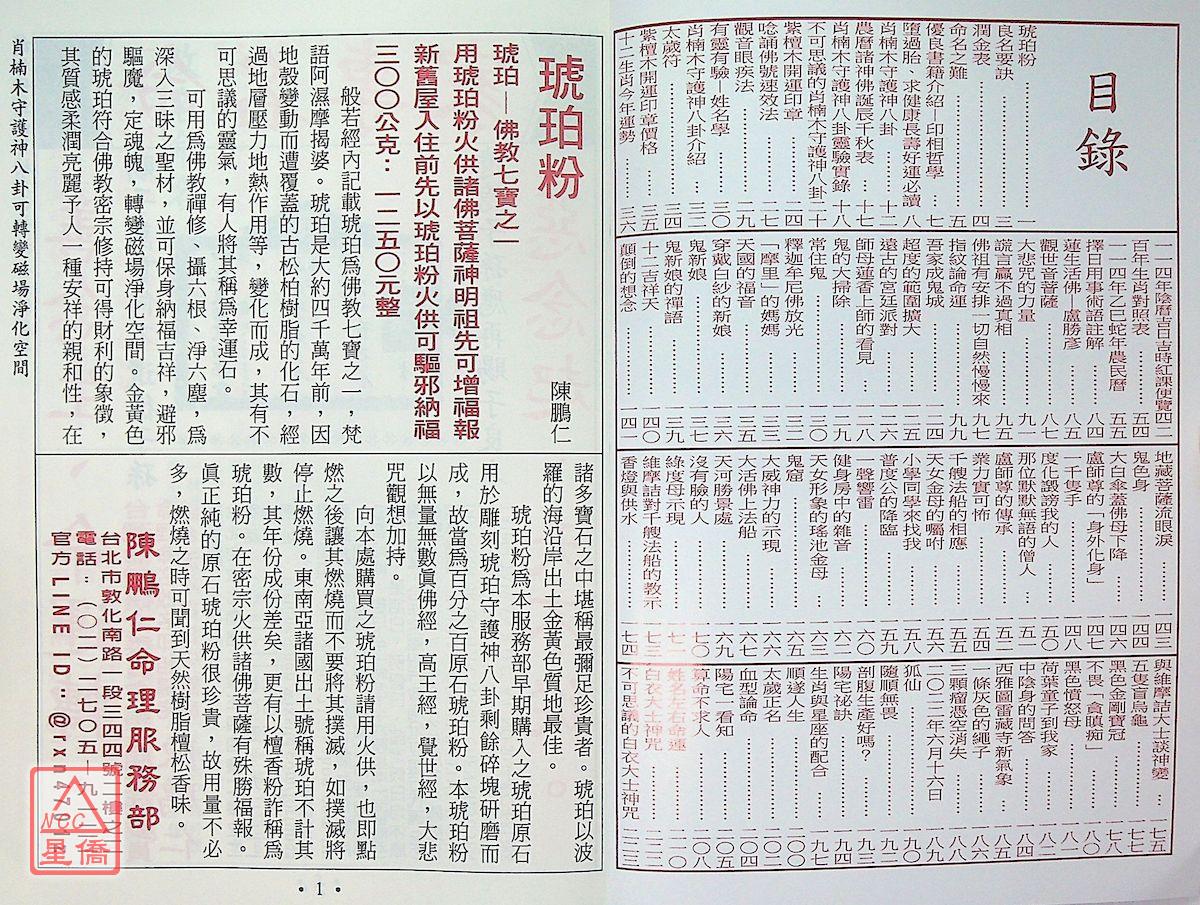 目錄
琥珀粉 …… 一
良名要訣 …… 三
潤金表 …… 四
命名之難 …… 五
優良書籍介紹—印相哲學 …… 七
墮過胎、求健康長壽好運必讀 …… 八
肖楠木守護神八卦 …… 十二
農曆諸神佛誕辰千秋表 …… 十七
肖楠木守護神八卦靈驗實錄 …… 十八
不可思議的肖楠木守護神八卦 …… 二十
紫檀木開運印章 …… 二四
唸誦佛號速效法 …… 二七
觀音眼疾法 …… 二九
有靈有驗—姓名學 …… 三〇
肖楠木守護神八卦介紹 …… 三二
太歲符 …… 三四
紫檀木開運印章價格 …… 三五
十二生肖今年運勢 …… 三六
一一四年陰曆吉日吉時紅課便覽 四二
百年生肖對照表 …… 五四
一一四年乙巳蛇年農民曆 …… 五五
擇日用事術語註解 …… 八四
蓮生活佛—盧勝彥 …… 八五
觀世音菩薩 …… 八七
大悲咒的力量 …… 九一
謊言贏不過真相 …… 九五
佛祖有安排一切自然慢慢來 …… 九九
指紋論命運
吾家成鬼城 …… 一二四
超度的範圍擴大 …… 一二五
遠古的宮廷派對 …… 一二六
師母蓮香上師的看見 …… 一二八
鬼的大掃除 …… 一二九
常住鬼 …… 一三〇
釋迦牟尼佛放光 …… 一三二
「摩里」的媽媽 …… 一三三
天國的福音 …… 一三五
穿戴白紗的新娘 …… 一三六
鬼新娘 …… 一三七
鬼新娘的禪語 …… 一三九
十二吉祥天 …… 一四〇
顛倒的想念 …… 一四一
地藏菩薩流眼淚 …… 一四三
鬼色身 …… 一四四
大白傘蓋佛母下降 …… 一四六
盧師尊的「身外化身」 …… 一四七
一千隻手 …… 一四八
度化譭謗我的人 …… 一五〇
那位默默無語的僧人 …… 一五一
盧師尊的傳承 …… 一五三
業力實可怖 …… 一五四
千艘法船的相應 …… 一五五
天女金母的囑咐 …… 一五六
小學同學來找我 …… 一五八
普度公的降臨 …… 一五九
一聲響雷 …… 一六一
健身房中的雜音 …… 一六二
天女形象的瑤池金母 …… 一六三
鬼窟 …… 一六五
大威神力的示現 …… 一六六
大活佛上法船 …… 一六七
天河勝景處 …… 一六九
沒有臉的人 …… 一七〇
綠度母示現 …… 一七二
維摩詰對千艘法船的教示 …… 一七三
香燈與供水 …… 一七四
與維摩詰大士談神變 …… 一七五
五隻盲烏龜 …… 一七七
黑色金剛寶冠 …… 一七八
不畏「貪瞋痴」 …… 一八一
黑色憤怒母 …… 一八二
荷葉童子到我家 …… 一八三
中陰身的問答 …… 一八四
西雅圖雷藏寺新氣象 …… 一八五
一條灰色的繩子 …… 一八六
三顆瘤憑空消失 …… 一八八
二〇二二年六月十六日 …… 一八九
狐仙 …… 一九〇
隨順無畏 …… 一九二
剖腹生產好嗎？ …… 一九三
陽宅祕訣 …… 一九四
生肖與星座的配合 …… 一九七
順遂人生 …… 二〇〇
太歲正名 …… 二〇三
血型論命 …… 二〇四
陽宅一看知 …… 二〇五
算命不求人 …… 二〇八
姓名左右命運 …… 二一〇
白衣大士神咒 …… 二一二
不可思議的白衣大士神咒 …… 二二三
琥珀粉
陳鵬仁
琥珀—佛教七寶之一
用琥珀粉火供諸佛菩薩神明祖先可增福報
新舊屋入住前先以琥珀粉火供可驅邪納福
三〇〇公克：一二五〇元整
般若經內記載琥珀爲佛教七寶之一，梵
語阿濕摩揭婆。琥珀是大約四千萬年前，因
地殼變動而遭覆蓋的古松柏樹脂的化石，經
過地層壓力地熱作用等，變化而成，其有不
可思議的靈氣，有人將其稱爲幸運石。
可用爲佛教禪修、攝六根、淨六塵，爲
深入三昧之聖材，並可保身納福吉祥，避邪
驅魔，定魂魄，轉變磁場淨化空間。金黃色
的琥珀符合佛教密宗修持可得財利的象徵，
其質感柔潤亮麗予人一種安祥的親和性，在
諸多寶石之中堪稱最彌足珍貴者。琥珀以波
羅的海沿岸出土金黃色質地最佳。
琥珀粉爲本服務部早期購入之琥珀原石
用於雕刻琥珀守護神八卦剩餘碎塊研磨而
成，故當爲百分之百原石琥珀粉。本琥珀粉
以無量無數眞佛經，高王經，覺世經，大悲
咒觀想加持。
向本處購買之琥珀粉請用火供，也即點
燃之後讓其燃燒而不要將其撲滅，如撲滅將
停止燃燒。東南亞諸國出土號稱琥珀不計其
數，其年份成份差矣，更有以檀香粉詐稱爲
琥珀粉。在密宗火供諸佛菩薩有殊勝福報。
眞正純的原石琥珀粉很珍貴，故用量不必
多，燃燒之時可聞到天然樹脂檀松香味。
陳鵬仁命理服務部
台北市敦化南路一段三四四號二樓之二
電話：（〇二）二七〇五—九二
官方LINE ID：@rxn47
肖楠木守護神八卦可轉變磁場淨化空間
•1•
NCC
星僑